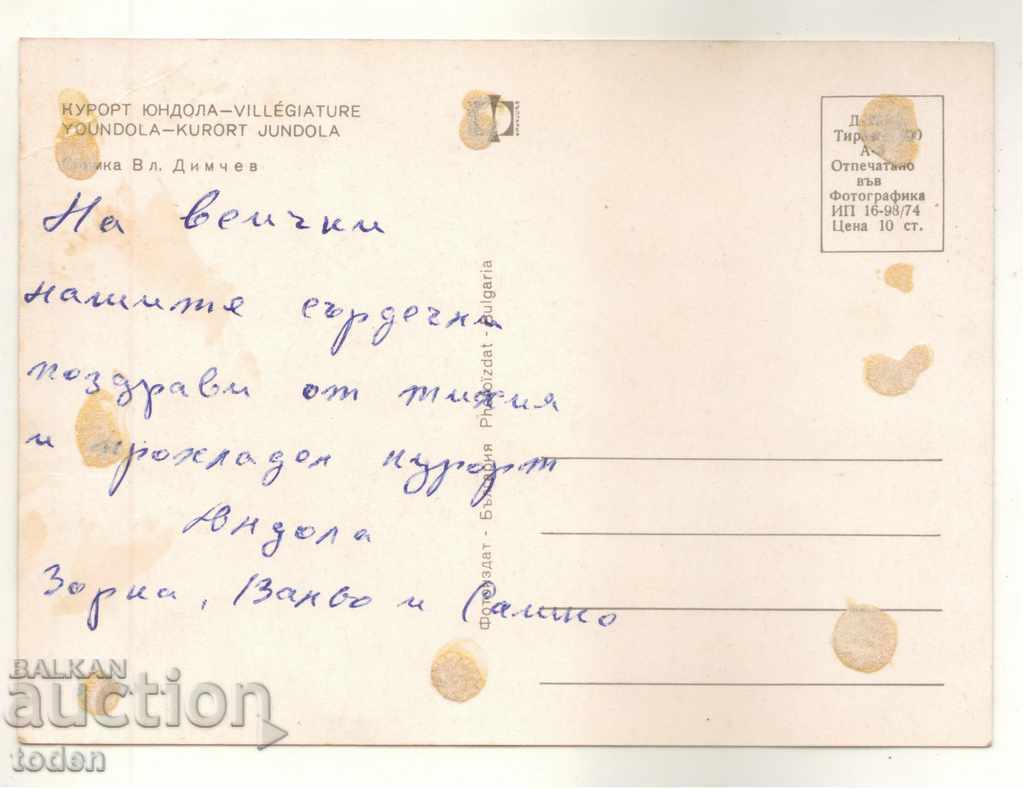 КУРОРТ ЮНДОЛА—VILLÉGIATURE
YOUNDOLA—KURORT JUNDOLA
Вл. Димчев
На всички
нашите сърдечни
поздрави от тихия
и прохладен курорт
Юндола
Зорка, Ваньо и Сашко
Фотоиздат - България Photoizdat - Bulgaria
Отпечатано
във
Фотографика
ИП 16-98/74
Цена 10 ст.
BALKAN
auction
toden